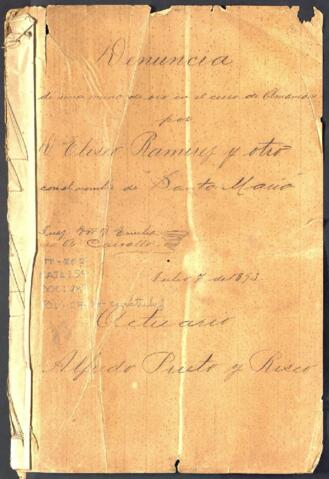 Denuncia
de una mina de oro en el cerro de
por
D Eliseo Ramirez y otro
con el nombre de "Santa Maria"
Juez Dr. D Emilio
Carvallo
Julio 7 de 1893.
Actuario
Alfredo Prieto y Risco